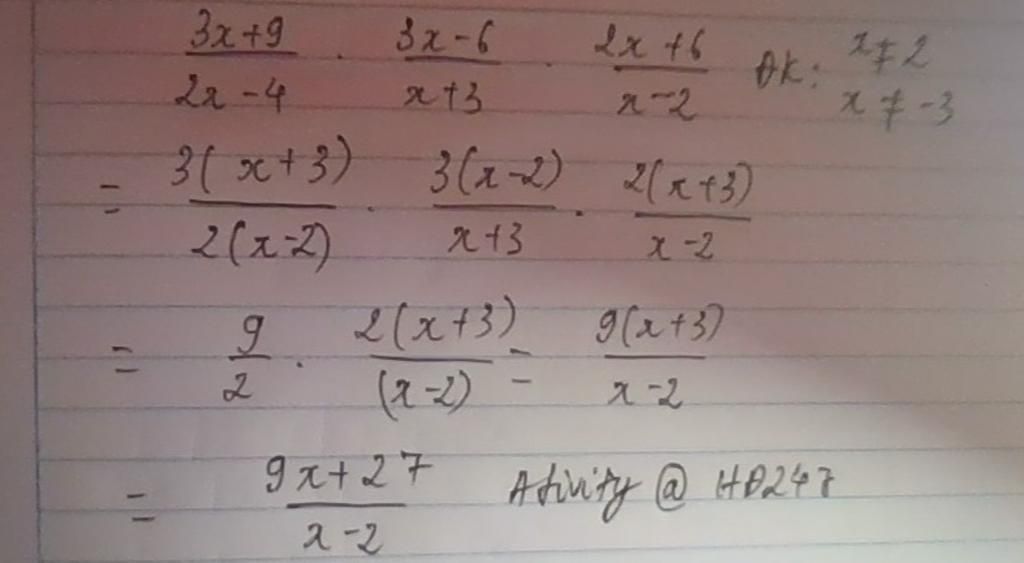 (3x+9)/(2x-4) · (3x-6)/(x+3) · (2x+6)/(x-2) ĐK: x≠2 x≠-3
= 3(x+3)/2(x-2) · 3(x-2)/(x+3) · 2(x+3)/(x-2)
= 9/2 · 2(x+3)/(x-2) = 9(x+3)/(x-2)
= (9x+27)/(x-2) Ativity @ HD247